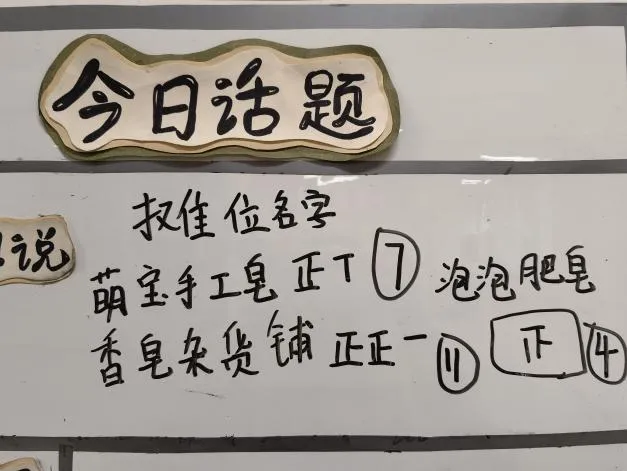 今日话题
说
摊位名字
萌宝手工皂 正丅 7 泡泡肥皂
香皂杂货铺 正正一 11 正 4